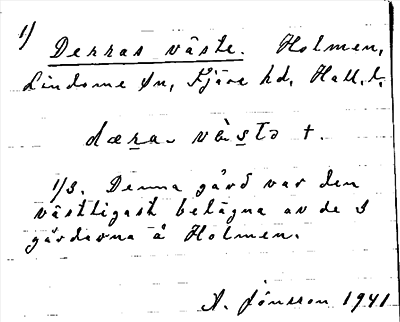 1)
Derras väste. Holmen,
Lindome sn, Fjäre hd, Hall. l.
dæra- vὰstə +.
1/3. Denna gård var den
västligast belägna av de 3
gårdarna å Holmen.
A. Jönsson 1941